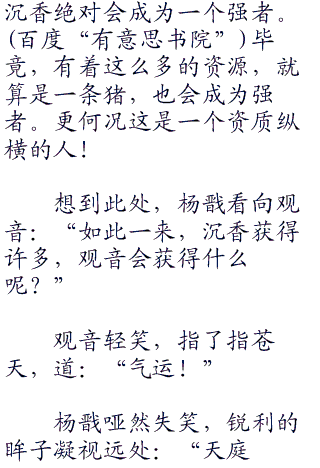 沉香绝对会成为一个强者。
(百度“有意思书院”)毕
竟，有着这么多的资源，就
算是一条猪，也会成为强
者。更何况这是一个资质纵
横的人！
想到此处，杨戬看向观
音：“如此一来，沉香获得
许多，观音会获得什么
呢？”
观音轻笑，指了指苍
天，道：“气运！”
杨戬哑然失笑，锐利的
眸子凝视远处：“天庭